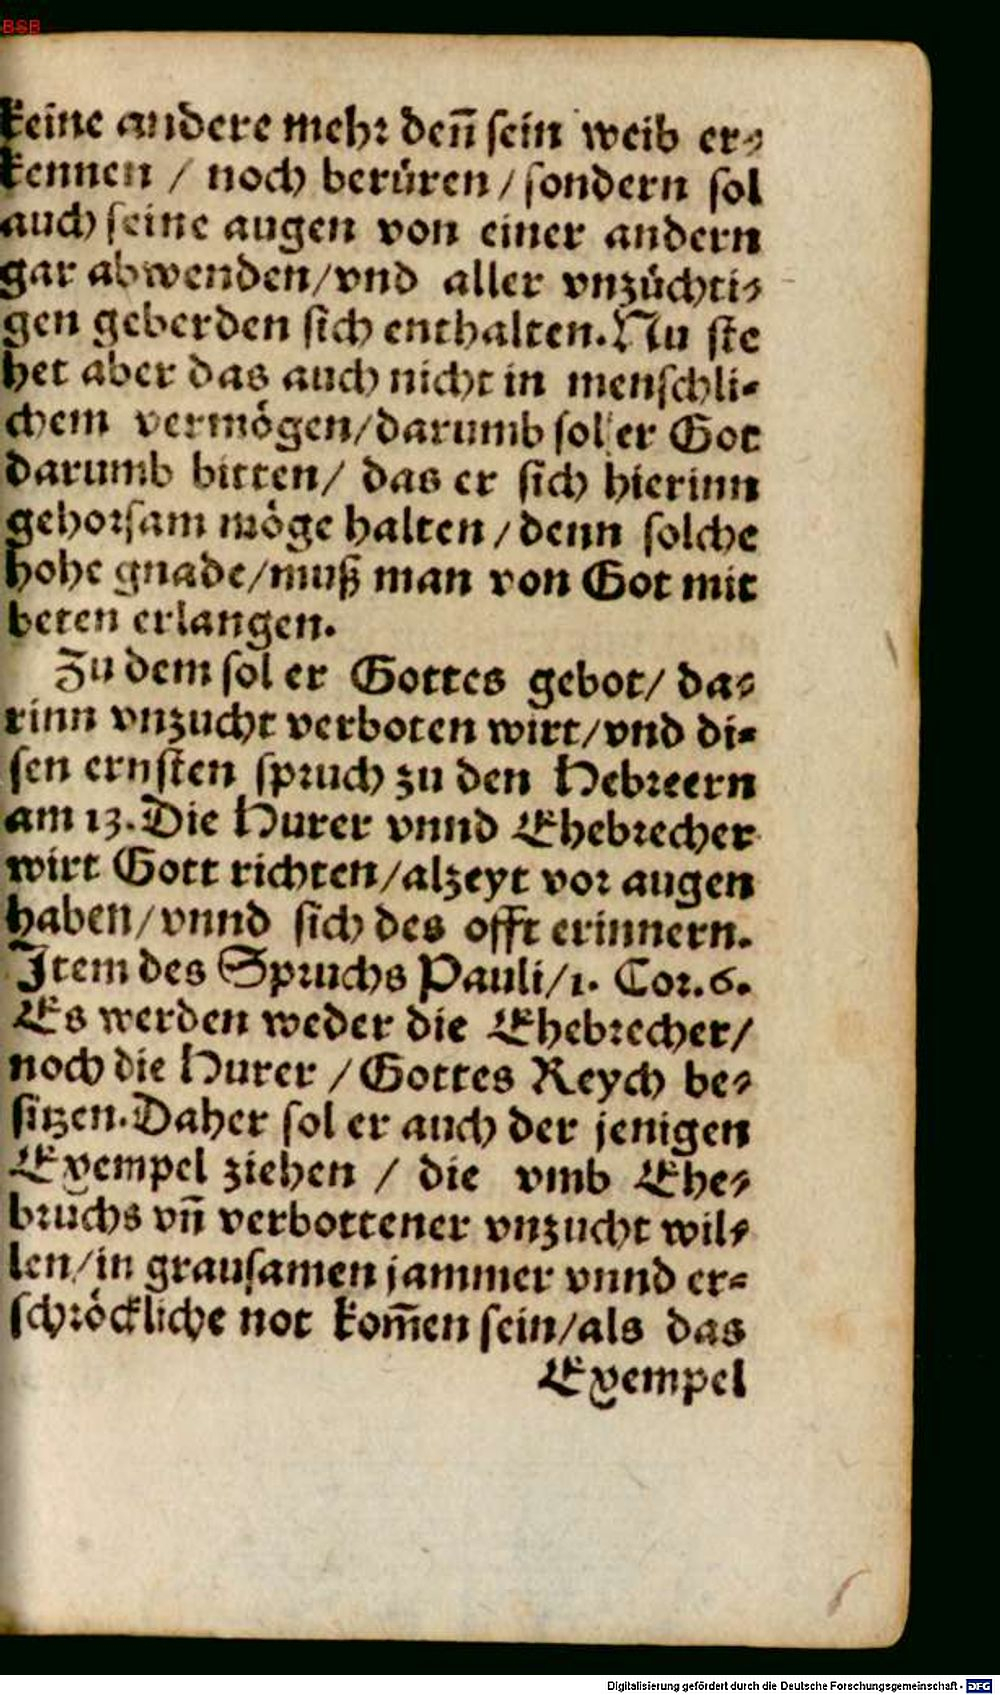 BSB
keine andere mehr deñ sein weib er⸗
kennen / noch berüren / sondern sol
auch seine augen von einer andern
gar abwenden/vnd aller vnzüchti⸗
gen geberden sich enthalten. Nu ste
het aber das auch nicht in menschli⸗
chem vermögen/darumb sol er Got
darumb bitten/ das er sich hierinn
gehorsam möge halten / denn solche
hohe gnade/muß man von Got mit
beten erlangen.
Zu dem sol er Gottes gebot/ da⸗
rinn vnzucht verboten wirt/vnd di⸗
sen ernsten spruch zu den Hebreern
am 13. Die Hurer vnnd Ehebrecher
wirt Gott richten/alzeyt vor augen
haben/vnnd sich des offt erinnern.
Item des Spruchs Pauli/1. Cor. 6.
Es werden weder die Ehebrecher/
noch die Hurer / Gottes Reych be⸗
sitzen. Daher sol er auch der jenigen
Exempel ziehen / die vmb Ehe⸗
bruchs vñ verbottener vnzucht wil⸗
len/in grausamen jammer vnnd er⸗
schröckliche not kom̃en sein/als das
Exempel
Digitalisierung gefördert durch die Deutsche Forschungsgemeinschaft - DFG